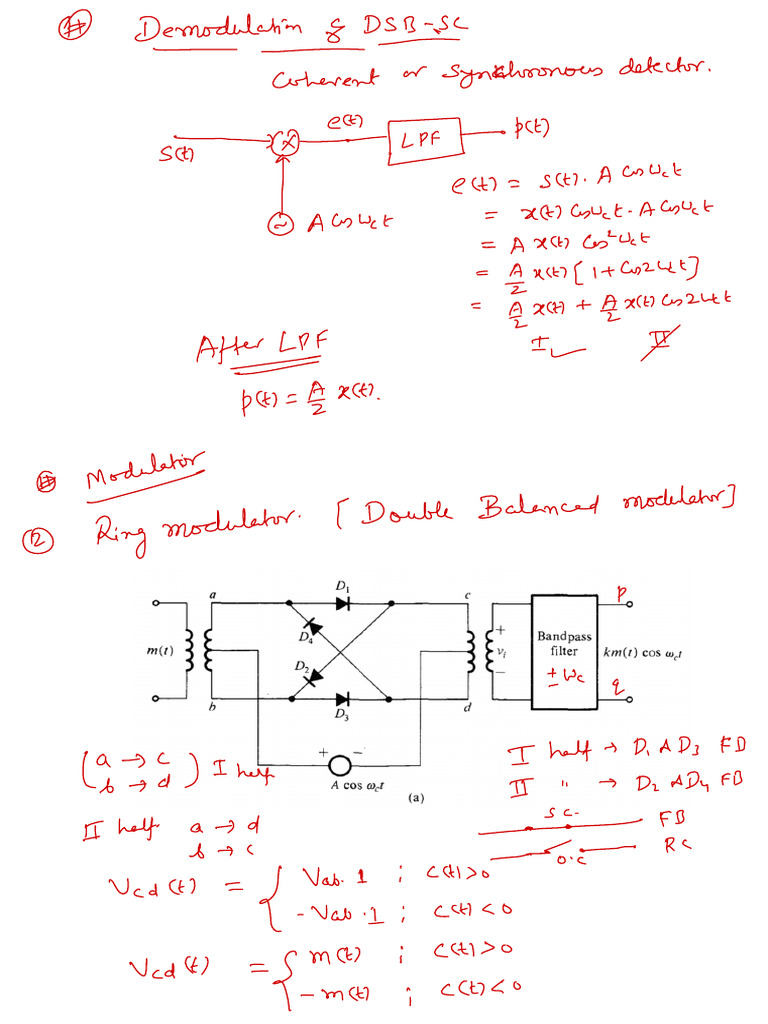 # Demodulation of DSB-SC
Coherent or Synchronous detector.
S(t) × e(t) LPF p(t)
~ A Cos ωct
e(t) = S(t). A Cos ωct
= x(t) Cos ωct. A Cos ωct
= A x(t) Cos²ωct
= A/2 x(t) [1 + Cos2ωct]
= A/2 x(t) + A/2 x(t) Cos2ωct
I ✓ II
After LPF
p(t) = A/2 x(t).
# Modulator
② Ring modulator. [Double Balanced modulator]
m(t) a b D1 D4 D2 D3 c d + vi −
Bandpass
filter
± ωc
p
km(t) cos ωct
q
+ −
A cos ωct
(a)
(a → c
b → d) I half
II half a → d
b → c
I half → D1 & D3 FB
II " → D2 & D4 FB
S C. FB
O.C RC
Vcd(t) = { Vab.1 ; C(t)>0
-Vab.1 ; C(t)<0
Vcd(t) = { m(t) ; C(t)>0
-m(t) ; C(t)<0